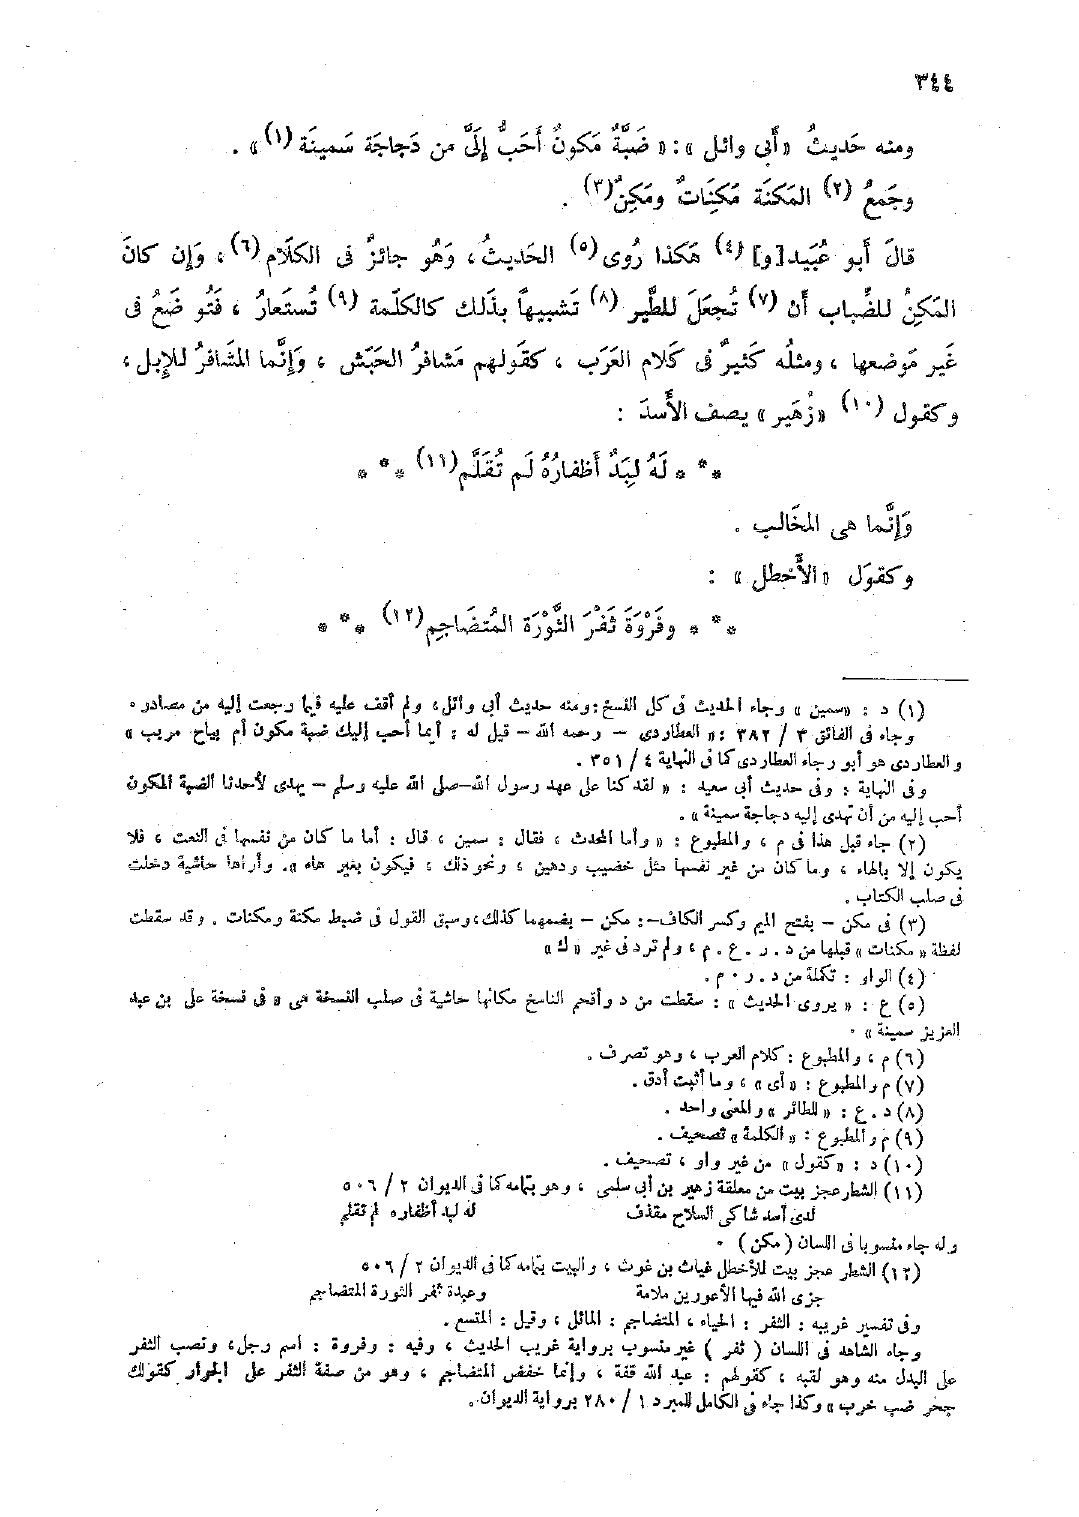 ٣٤٤
ومنه حَديثُ «أَبى وائل»: «ضَبَّةٌ مَكونٌ أَحَبُّ إِلَىَّ من دَجاجَة سَمينَة (١)» .
وجَمعُ (٢) المَكنَة مَكِنَاتٌ ومَكِنٌ(٣) .
قالَ أَبو عُبَيد[و] (٤) هَكذا رُوى(٥) الحَديثُ، وَهُو جائزٌ فى الكلَام(٦)، وَإِن كانَ
المَكنُ للضِّباب أَن (٧) تُجعَلَ للطَّير (٨) تَشبيهاً بذَلك كالكلمَة (٩) تُستَعارُ ، فَتُو ضَعُ فى
غَير مَوضعها ، ومثلُه كَثيرٌ فى كَلام العَرَب ، كقَولهم مَشافرُ الحَبَش ، وَإِنَّما المشَافرُ للإِبل ،
وكقول (١٠) «زُهَير» يصف الأَسدَ :
* * * لَهُ لِبَدٌ أَظفارُهُ لَم تُقَلَّم(١١) * * *
وَإِنَّما هى المخَالب .
وكقَول «الأَخطل» :
* * * وفَرْوَةَ ثَفْرَ الثَّوْرَة المُتضَاجِم(١٢) * * *
(١) د : «سمين» وجاء الحديث فى كل النسخ: ومنه حديث أبى وائل، ولم أقف عليه فيما رجعت إليه من مصادر.
وجاء فى الفائق ٣ / ٣٨٢ : «العطاردى – رحمه الله – قيل له : أيما أحب إليك ضبة مكون أم بياح مريب»
والعطاردى هو أبو رجاء العطاردى كما فى النهاية ٤ / ٣٥١ .
وفى النهاية : وفى حديث أبى سعيد : «لقد كنا على عهد رسول الله–صلى الله عليه وسلم – يهدى لأحدنا الضبة المكون
أحب إليه من أن تهدى إليه دجاجة سمينة» .
(٢) جاء قبل هذا فى م ، والمطبوع : «وأما المحدث ، فقال : سمين ، قال : أما ما كان من نفسها فى النعت ، فلا
يكون إلا بالهاء ، وما كان من غير نفسها مثل خضيب ودهين ، ونحو ذلك ، فيكون بغير هاء». وأراها حاشية دخلت
فى صلب الكتاب .
(٣) فى مكن – بفتح الميم وكسر الكاف–: مكن – بضمهما كذلك، وسبق القول فى ضبط مكنة ومكنات . وقد سقطت
لفظة «مكنات» قبلها من د . ر . ع . م ، ولم ترد فى غير «ك»
(٤) الواو : تكملة من د . ر . م .
(٥) ع : «يروى الحديث» : سقطت من د وأقحم الناسخ مكانها حاشية فى صلب النسخة هى «فى نسخة على بن عبد
العزيز سمينة» .
(٦) م ، والمطبوع : كلام العرب ، وهو تصرف .
(٧) م والمطبوع : «أى» ، وما أثبت أدق .
(٨) د . ع : «للطائر» والمعنى واحد .
(٩) م والمطبوع : «الكلمة» تصحيف .
(١٠) د : «كقول» من غير واو ، تصحيف .
(١١) الشطر عجز بيت من معلقة زهير بن أبى سلمى ، وهو بتمامه كما فى الديوان ٢ / ٥٠٦
لدى أسد شاكى السلاح مقذف له لبد أظفاره لم تقلم
وله جاء منسوبا فى اللسان (مكن) .
(١٢) الشطر عجز بيت للأخطل غياث بن غوث ، والبيت بتمامه كما فى الديوان ٢ / ٥٠٦
جزى الله فيها الأعورين ملامة وعبدة ثفر الثورة المتضاجم
وفى تفسير غريبه : الثفر : الحياء ، المتضاجم : المائل ، وقيل : المتسع .
وجاء الشاهد فى اللسان (ثفر) غير منسوب برواية غريب الحديث ، وفيه : وفروة : اسم رجل، ونصب الثفر
على البدل منه وهو لقبه ، كقولهم : عبد الله قفة ، وإنما خفض المتضاجم ، وهو من صفة الثفر على الجوار كقولك
جحر ضب خرب» وكذا جاء فى الكامل للمبرد ١ / ٢٨٠ برواية الديوان .